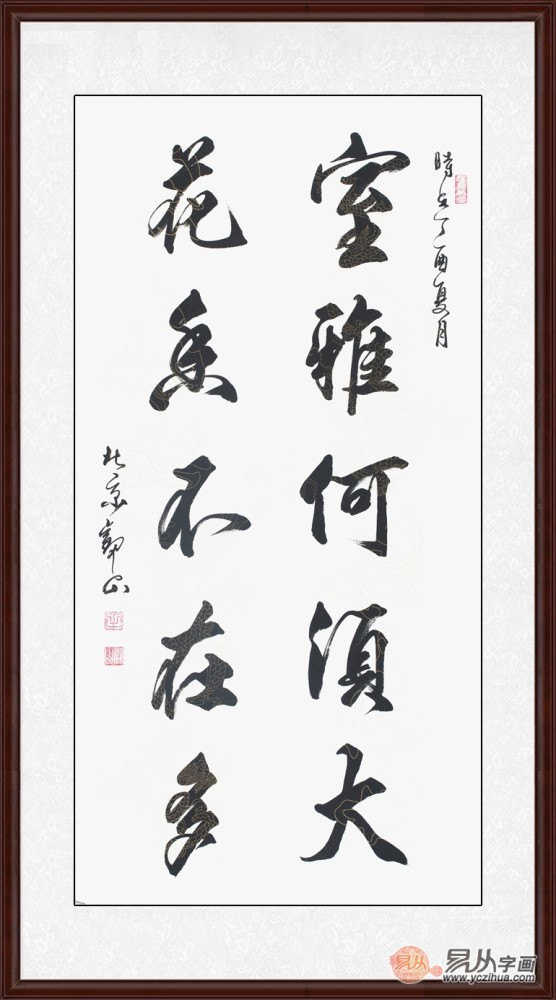 時在丁酉夏月
室雅何須大
花香不在多
北京
易从
易从字画
www.yczihua.com